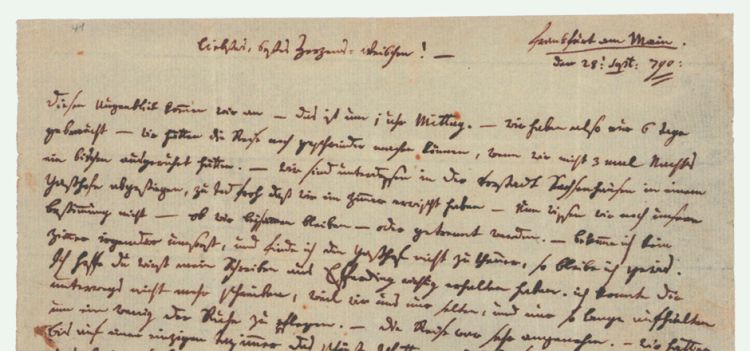 41
liebstes, bestes Herzens-Weibchen! —
Frankfurt am Main.
den 28:t Sept: 790:
Diesen Augenblick komen wir an — das ist um 1 uhr Mittag. — wir haben also nur 6 tage
gebraucht — wir hätten die Reise noch geschwinder machen können, wenn wir nicht 3 mal Nachts
ein bischen ausgeruhet hätten. — wir sind unterdessen in der Vorstadt Sachsenhausen in einem
Gasthofe abgestiegen, zu tod froh daß wir ein zimer erwischt haben — Nun wissen wir noch unsere
bestimmung nicht — ob wir beysammen bleiben — oder getrennt werden. — bekomme ich kein
Zimer irgendwo umsonst, und finde ich die Gasthöfe nicht zu theuer, so bleibe ich gewis.
Ich hoffe du wirst mein Schreiben aus Efferding richtig erhalten haben. ich konnte dir
unterwegs nicht mehr schreiben, weil wir uns nur selten, und nur so lange aufhielten
um ein wenig der Ruhe zu pflegen. — die Reise war sehr angenehm. — wir hatten
bis auf einen einzigen tag immer das schönste